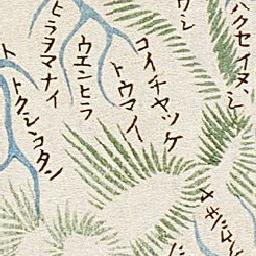 ハクセイヌシ
ウシ
コイチヤツケ
トウマイ
ウエンヒラ
ヒラヲマナイ
トクシンコタン
ト